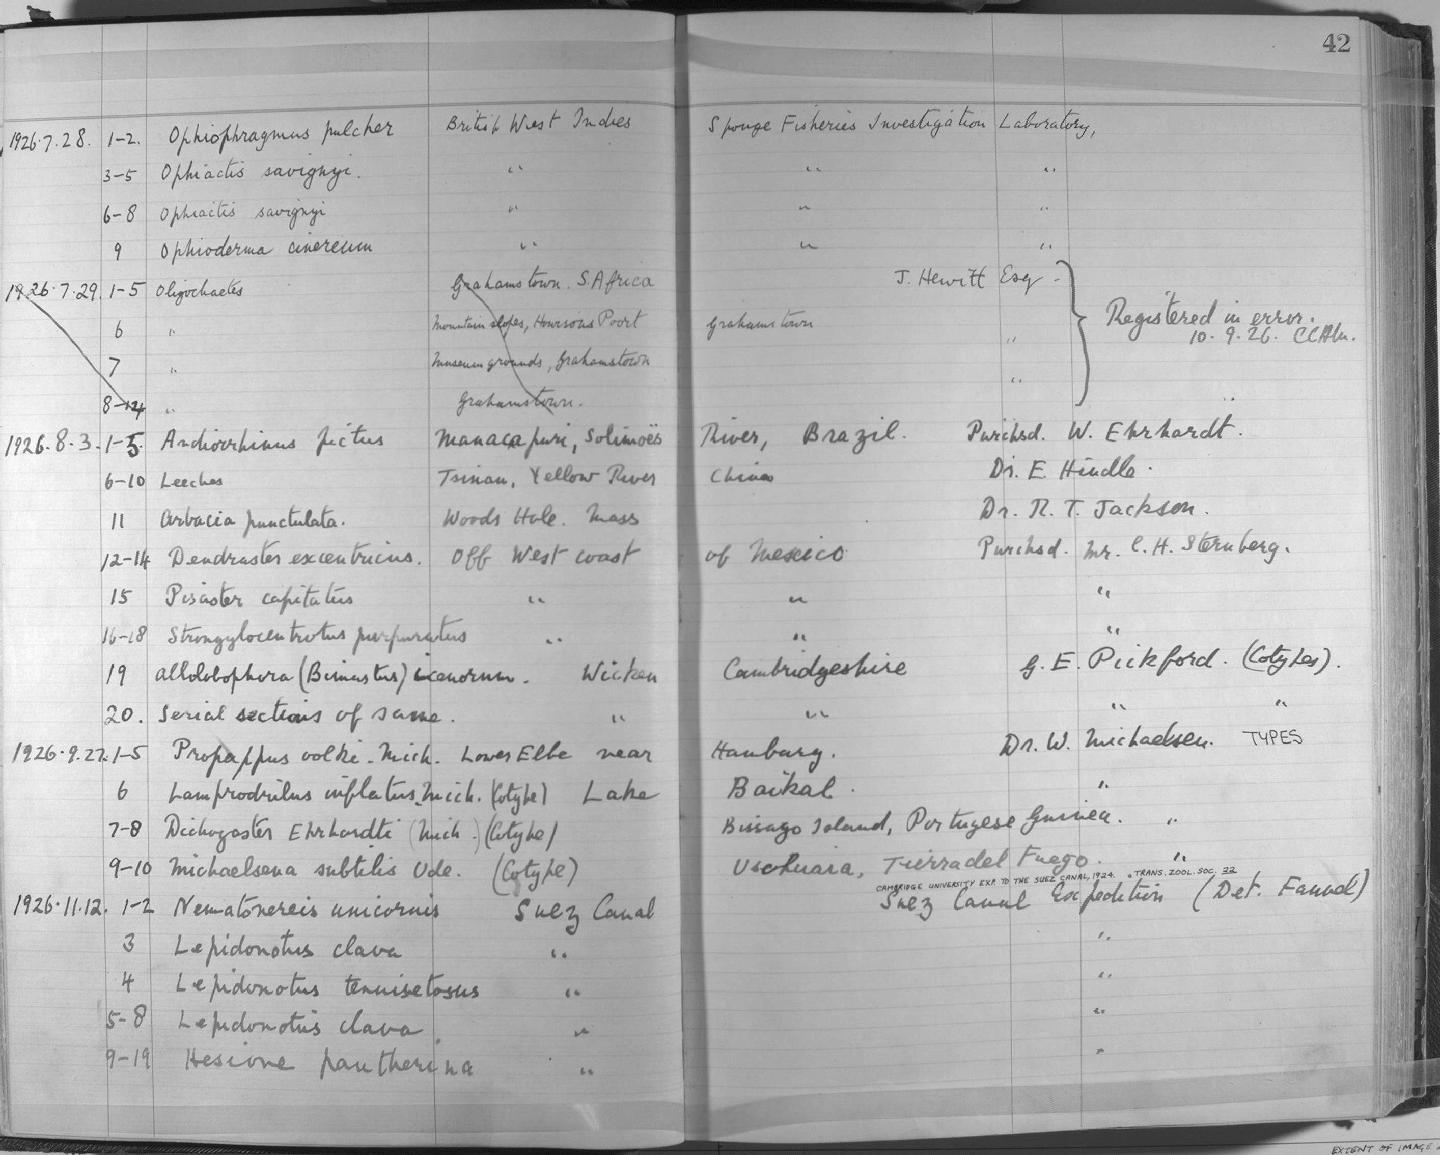 42
1926.7.28. 1-2. Ophiophragmus pulcher British West Indies Sponge Fisheries Investigation Laboratory,
3-5 Ophiactis savignyi. " " "
6-8 Ophiactis savignyi " " "
9 Ophioderma cinereum " " "
1926.7.29. 1-5 Oligochaetes Grahamstown. S. Africa J. Hewitt Esq -
6 " Mountain slopes, Howisons Poort Grahamstown " Registered in error.
10.9.26.
7 " Museum grounds, Grahamstown "
8-14 " Grahamstown. "
1926.8.3. 1-5. Andiorrhinus pictus Manacapuri, Solimoës River, Brazil. Purchsd. W. Ehrhardt.
6-10 Leeches Tsinan, Yellow River China Dr. E. Hindle.
11 Arbacia punctulata. Woods Hole. Mass Dr. R. T. Jackson.
12-14 Dendraster excentricus. Off West coast of Mexico Purchsd. Mr. C. H. Sternberg.
15 Pisaster capitatus " " "
16-18 Strongylocentrotus purpuratus " " "
19 Allolobophora (Bimastus) icenorum. Wicken Cambridgeshire G. E. Pickford. (Cotypes).
20. Serial sections of same. " " " "
1926.9.27. 1-5 Propappus volki. Mich. Lower Elbe near Hamburg. Dr. W. Michaelsen. TYPES
6 Lamprodrilus inflatus. Mich. (Cotype) Lake Baikal. "
7-8 Dichogaster Ehrhardti (Mich.) (Cotype) Bissago Island, Portugese Guinea. "
9-10 Michaelsena subtilis Ude. (Cotype) Uschuaia, Tierra del Fuego. "
CAMBRIDGE UNIVERSITY EXP. TO THE SUEZ CANAL, 1924. TRANS. ZOOL. SOC. 22
1926.11.12. 1-2 Nematonereis unicornis Suez Canal Suez Canal Expedition (Det. Fauvel)
3 Lepidonotus clava " "
4 Lepidonotus tenuisetosus " "
5-8 Lepidonotus clava " "
9-19 Hesione pantherina " "
EXTENT OF IMAGE